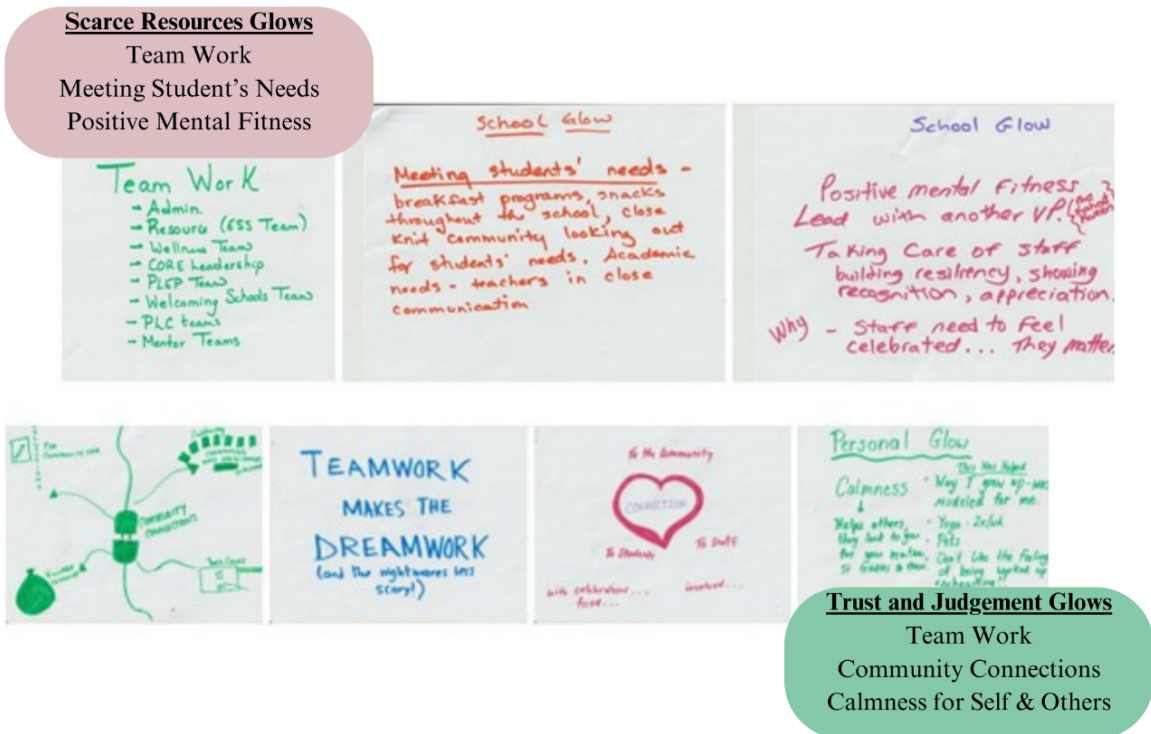 Scarce Resources Glows
Team Work
Meeting Student's Needs
Positive Mental Fitness
Team Work
- Admin.
- Resource (ESS Team)
- Wellness Team
- CORE Leadership
- PLEP Team
- Welcoming Schools Team
- PLC teams
- Mentor Teams
School Glow
Meeting students' needs -
breakfast programs, snacks
throughout the school, close
knit community looking out
for students' needs. Academic
needs - teachers in close
communication
School Glow
Positive mental fitness
Lead with another VP.
Taking Care of staff
building resiliency, showing
recognition, appreciation.
Why - Staff need to feel
celebrated... They matter
COMMUNITY
CONNECTIONS
TEAMWORK
MAKES THE
DREAMWORK
(and the nightmares less
scary!)
To the Community
CONNECTION
To Students
To Staff
with celebrations...
Personal Glow
This Has Helped
Calmness
- Way I grew up - was
modeled for me.
Helps others,
they look to you
for your reaction.
- Yoga - 2x/wk
- Pets
Can't like the feeling
of being worked up
Trust and Judgement Glows
Team Work
Community Connections
Calmness for Self & Others